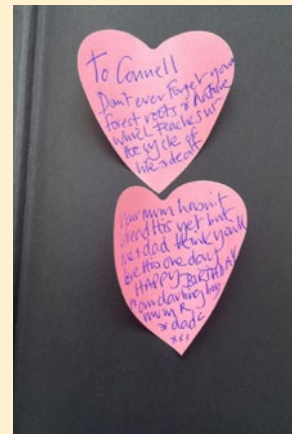 To Connell
Don't ever forget your
forest roots & Nature
which teaches us
the cycle of
life & death
Your mum hasn't
read this yet but
me & dad think you'll
love this one day
HAPPY BIRTHDAY
our darling boy
mum R
& dad c
xxx